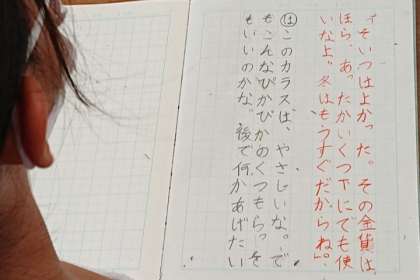 「そいつはよかった。その金貨は
ほら、あったかいくつ下にでも使
いなよ。冬はもうすぐだからね。」
はこのカラスは、やさしいな。で
もこんなぴかぴかのくつもらって
もいいのかな。後で何かあげたい